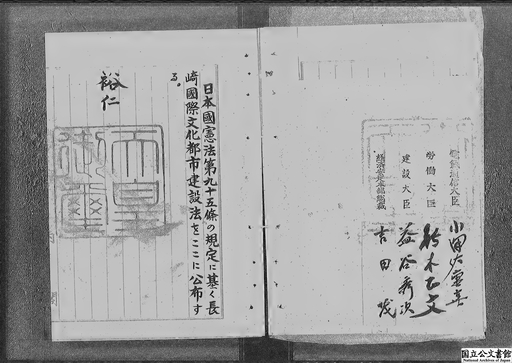 日本國憲法第九十五條の規定に基く長
崎國際文化都市建設法をここに公布す
る。
裕仁
天皇
御璽
勞働大臣
鈴木正文
建設大臣
益谷秀次
吉田茂
国立公文書館
National Archives of Japan